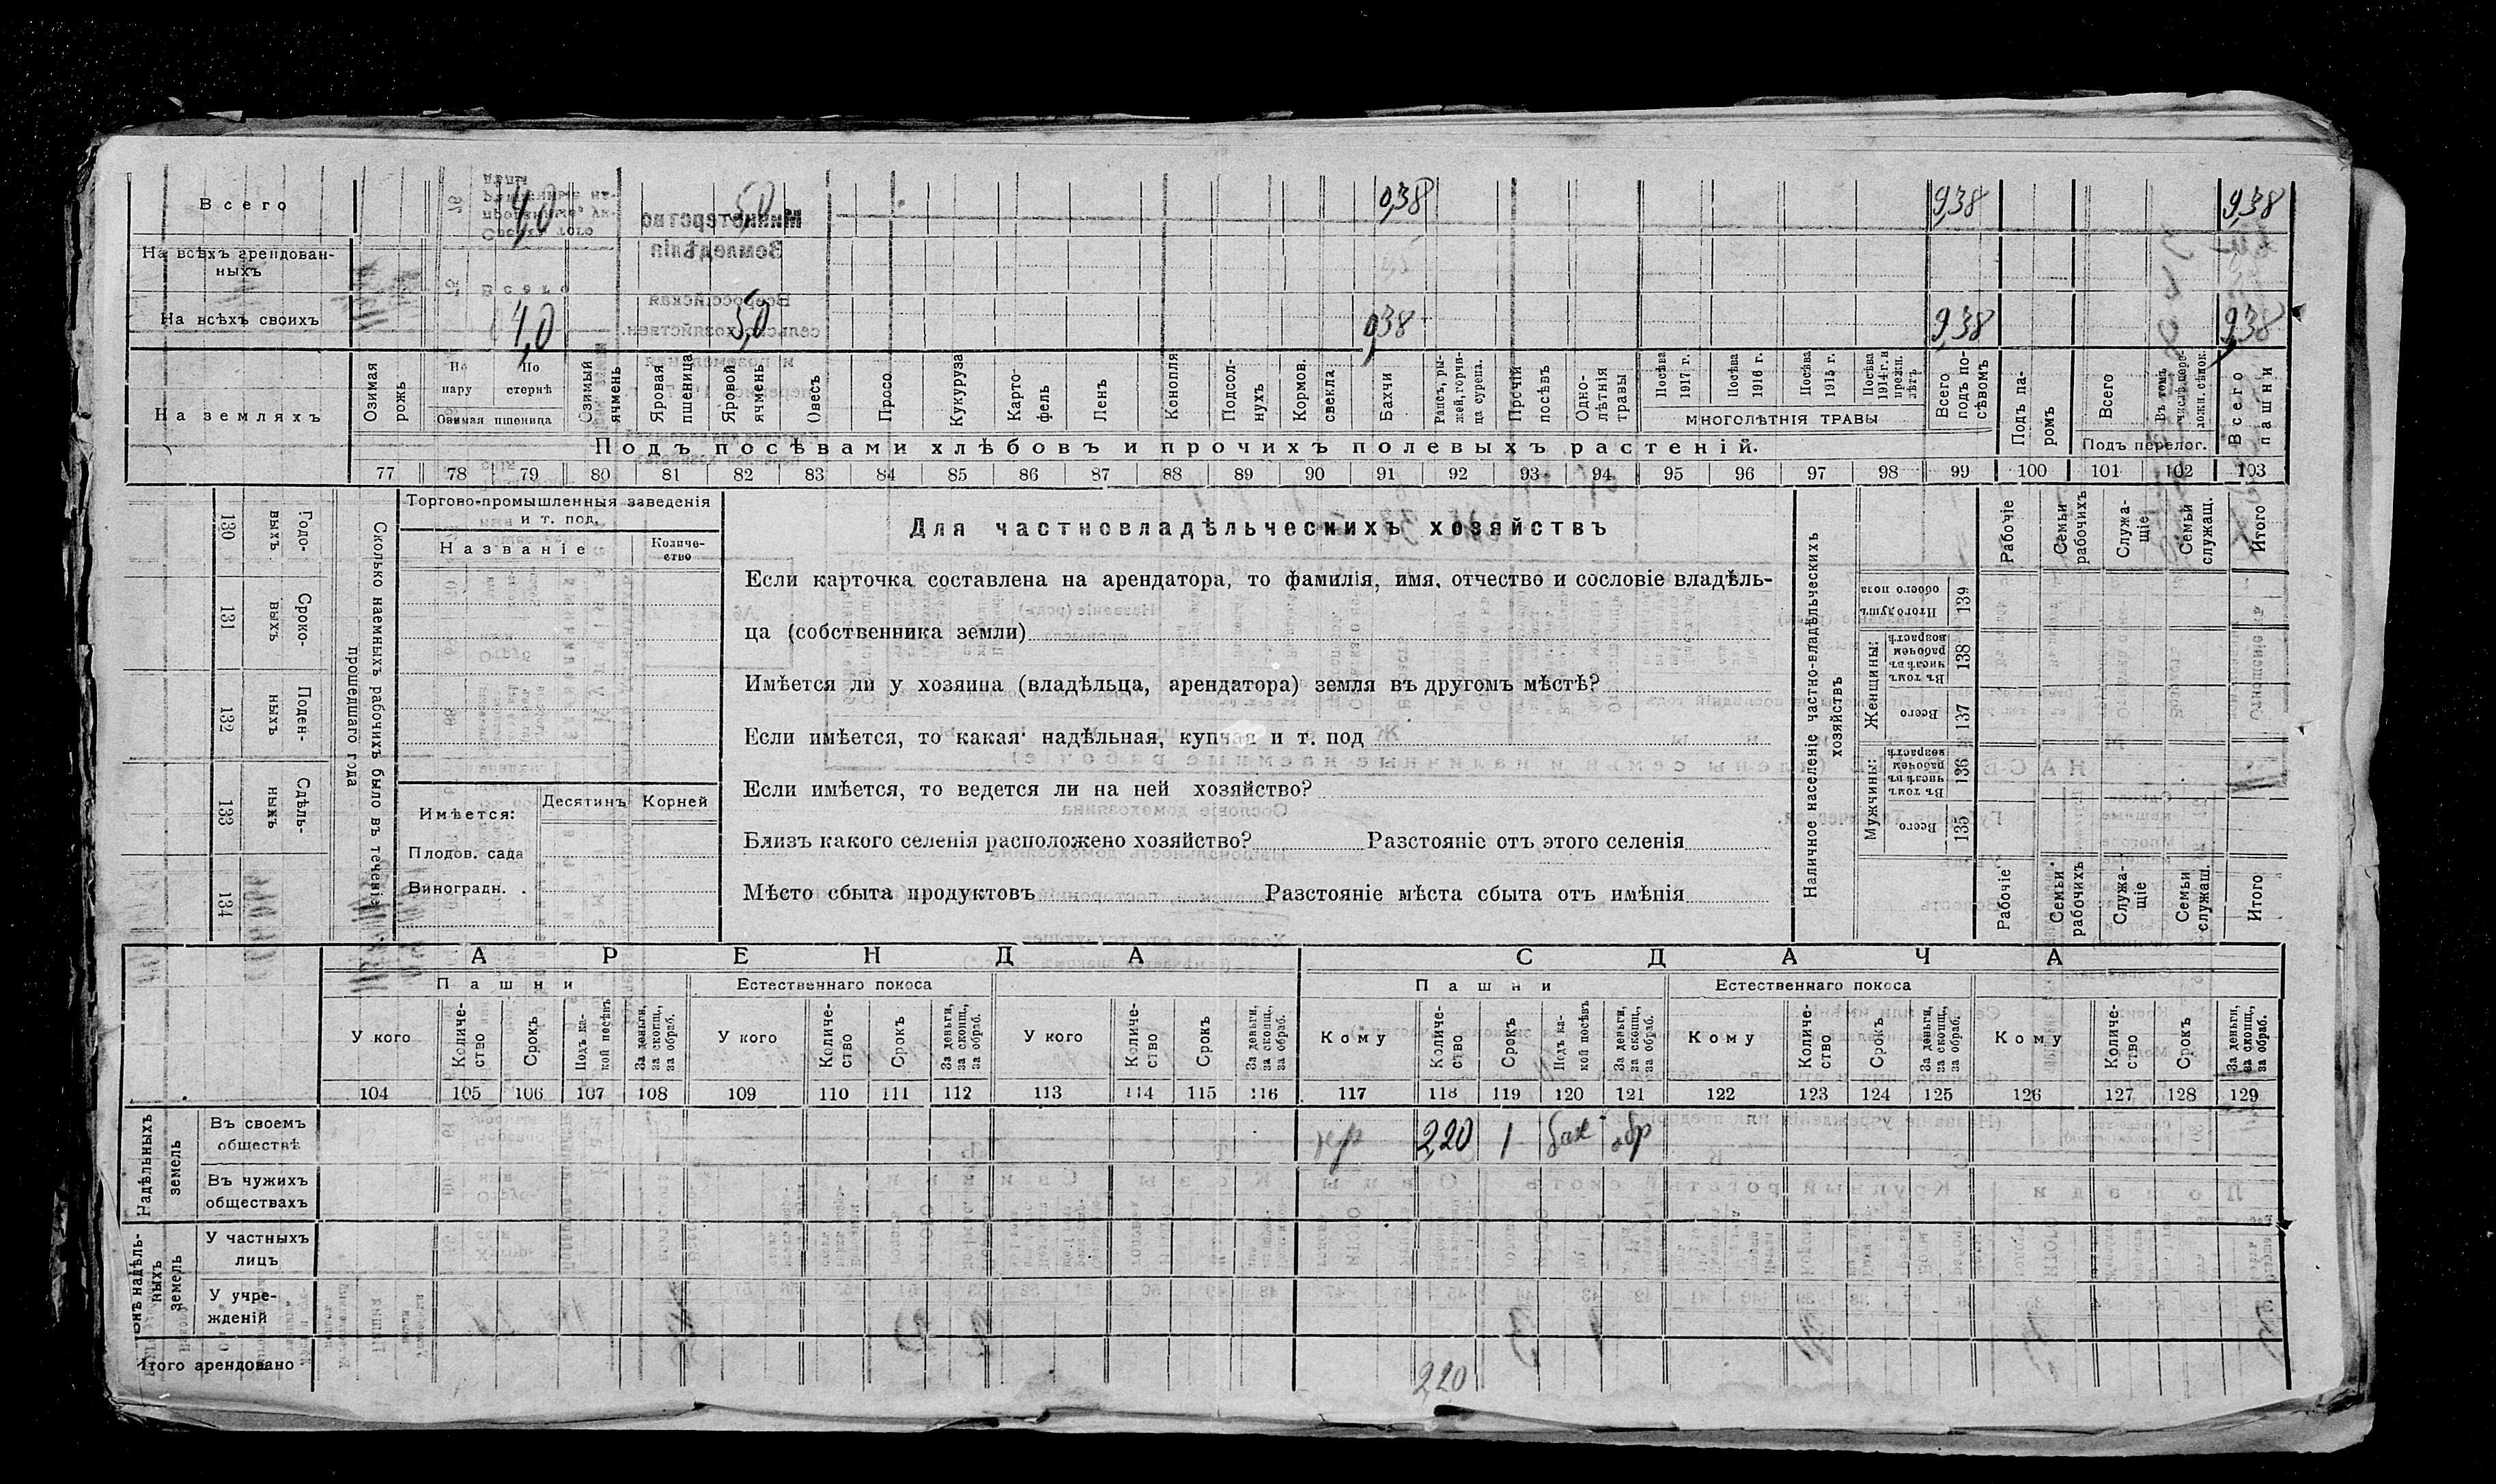 Всего 4,0 5,0 0,38 9,38 9,38
На всѣхъ арендован-
ныхъ
На всѣхъ своихъ 4,0 5,0 0,38 9,38 9,38
На земляхъ
Озимая рожь
По пару
По стернѣ
Озимая пшеница
Озимый ячмень
Яровая пшеница
Яровой ячмень
Овесъ
Просо
Кукуруза
Карто
фель
Ленъ
Конопля
Подсол-
нухъ
Кормов.
свекла
Бахчи
Рапсъ, ры-
жей, горчи-
ца сурепа.
Прочій
посѣвъ
Одно-
лѣтнія
травы
Посѣва
1917 г.
Посѣва
1916 г.
Посѣва
1915 г.
Посѣва
1914 г. и
прежн.
лѣтъ
МНОГОЛѢТНІЯ ТРАВЫ
Всего
подъ по-
сѣвомъ
Подъ па-
ромъ
Всего
Въ томъ
числѣ пере-
ложн. сѣнок.
Подъ перелог.
Всего
пашни
Подъ посѣвами хлѣбовъ и прочихъ полевыхъ растеній.
77 78 79 80 81 82 83 84 85 86 87 88 89 90 91 92 93 94 95 96 97 98 99 100 101 102 103
Сколько наемныхъ рабочихъ было въ теченіе
прошедшаго года
Годо-
выхъ
130
Сроко-
выхъ
131
Поден-
ныхъ
132
Сдѣль-
ныхъ
133
134
Торгово-промышленныя заведенія
и т. под.
Названіе
Количе-
ство
Имѣется:
Десятинъ Корней
Плодов. сада
Виноградн. .
Для частновладѣльческихъ хозяйствъ
Если карточка составлена на арендатора, то фамилія, имя, отчество и сословіе владѣль-
ца (собственника земли)
Имѣется ли у хозяина (владѣльца, арендатора) земля въ другомъ мѣстѣ?
Если имѣется, то какая: надѣльная, купчая и т. под
Если имѣется, то ведется ли на ней хозяйство?
Близъ какого селенія расположено хозяйство? Разстояніе отъ этого селенія
Мѣсто сбыта продуктовъ Разстояніе мѣста сбыта отъ имѣнія
Наличное населеніе частно-владѣльческихъ
хозяйствъ
Рабочіе
Семьи
рабочихъ
Служа-
щіе
Семьи
служащ.
Итого
Итого душъ
обоего пола
139
Женщины:
Въ томъ
числѣ въ
рабочемъ
возрастѣ
138
Всего
137
Мужчины:
Въ томъ
числѣ въ
рабочемъ
возрастѣ
136
Всего
135
Рабочіе
Семьи
рабочихъ
Служа-
щіе
Семьи
служащ.
Итого
АРЕНДА СДАЧА
Пашни Естественнаго покоса Пашни Естественнаго покоса
У кого
Количе-
ство
Срокъ
Подъ ка-
кой посѣвъ
За деньги,
за скопщ.,
за обраб.
У кого
Количе-
ство
Срокъ
За деньги,
за скопщ.,
за обраб.
У кого
Количе-
ство
Срокъ
За деньги,
за скопщ.,
за обраб.
Кому
Количе-
ство
Срокъ
Подъ ка-
кой посѣвъ
За деньги,
за скопщ.,
за обраб.
Кому
Количе-
ство
Срокъ
За деньги,
за скопщ.,
за обраб.
Кому
Количе-
ство
Срокъ
За деньги,
за скопщ.,
за обраб.
104 105 106 107 108 109 110 111 112 113 114 115 116 117 118 119 120 121 122 123 124 125 126 127 128 129
Надѣльныхъ
земель
Въ своемъ
обществѣ
кр 2,20 1 бах обр
Въ чужихъ
обществахъ
Внѣ надѣль-
ныхъ
земель
У частныхъ
лицъ
У учре-
жденій
Итого арендовано 2,20